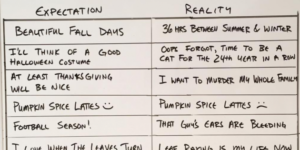 EXPECTATION REALITY
BEAUTIFUL FALL DAYS
36 HRS BETWEEN SUMMER & WINTER
I'LL THINK OF A GOOD
HALLOWEEN COSTUME
OOPS FORGOT, TIME TO BE A
CAT FOR THE 24TH YEAR IN A ROW
AT LEAST THANKSGIVING
WILL BE NICE
I WANT TO MURDER MY WHOLE FAMILY
PUMPKIN SPICE LATTES
PUMPKIN SPICE LATTES
FOOTBALL SEASON!
THAT GUY'S EARS ARE BLEEDING
I LOVE WHEN THE LEAVES TURN
LEAF RAKING IS MY LIFE NOW